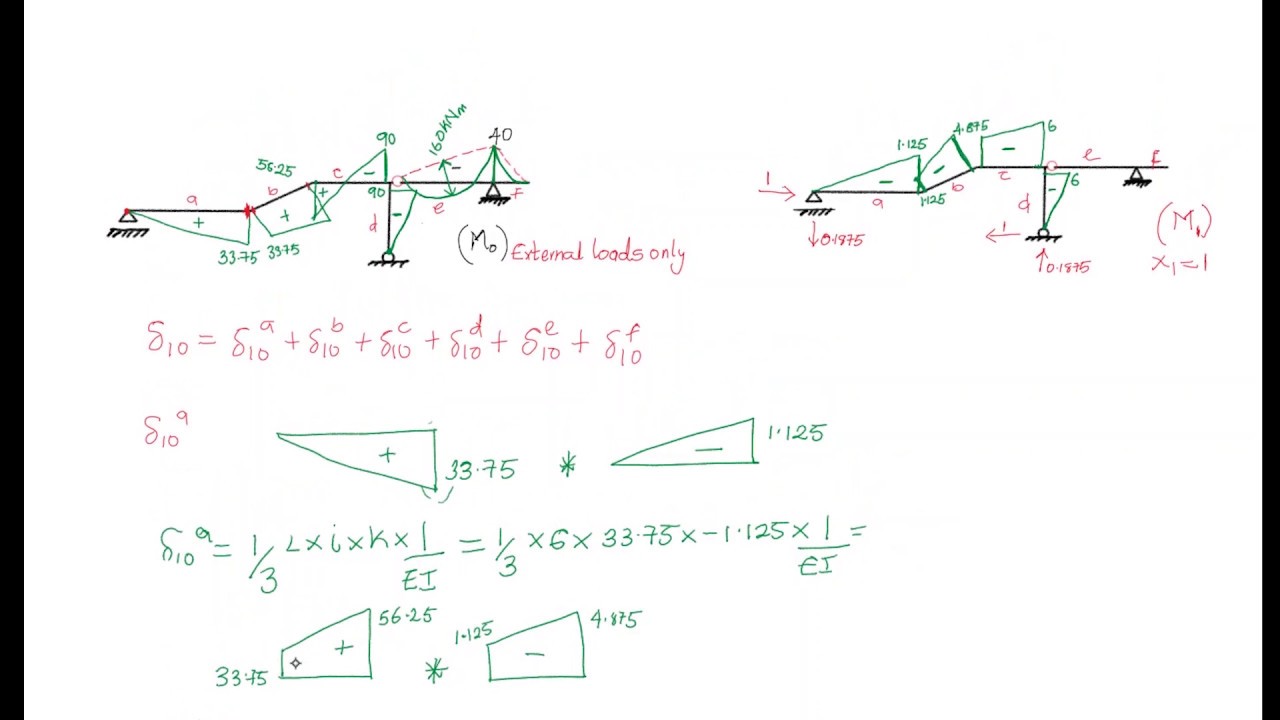 160kNm
90
40
56.25
c
-
-
b
a
+
90
+
+
d
-
e
F
33.75
33.75
(M₀) External loads only
6
4.875
1.125
-
-
-
e
f
1
a
b
c
1.125
d
-
6
0.1875
1
0.1875
(M₁)
x₁=1
δ₁₀ = δ₁₀ᵃ + δ₁₀ᵇ + δ₁₀ᶜ + δ₁₀ᵈ + δ₁₀ᵉ + δ₁₀ᶠ
δ₁₀ᵃ
+ 33.75 * - 1.125
δ₁₀ᵃ = 1/3 L × i × k × 1/EI = 1/3 × 6 × 33.75 × -1.125 × 1/EI =
33.75 + 56.25 * 1.125 - 4.875